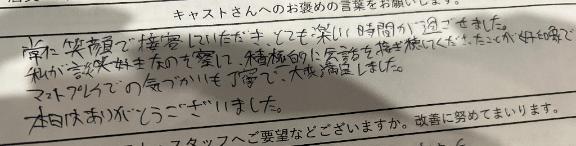 キャストさんへのお褒めの言葉をお願いします。
常に笑顔で接客していただき、とても楽しい時間が過ごせました。
私が談笑好きなのを察して、積極的に会話を接ぎ続けてくださったことが好印象で
マットプレイでの気づかいも丁寧で、大変満足しました。
本日はありがとうございました。
スタッフへご要望などございますか。改善に努めてまいります。